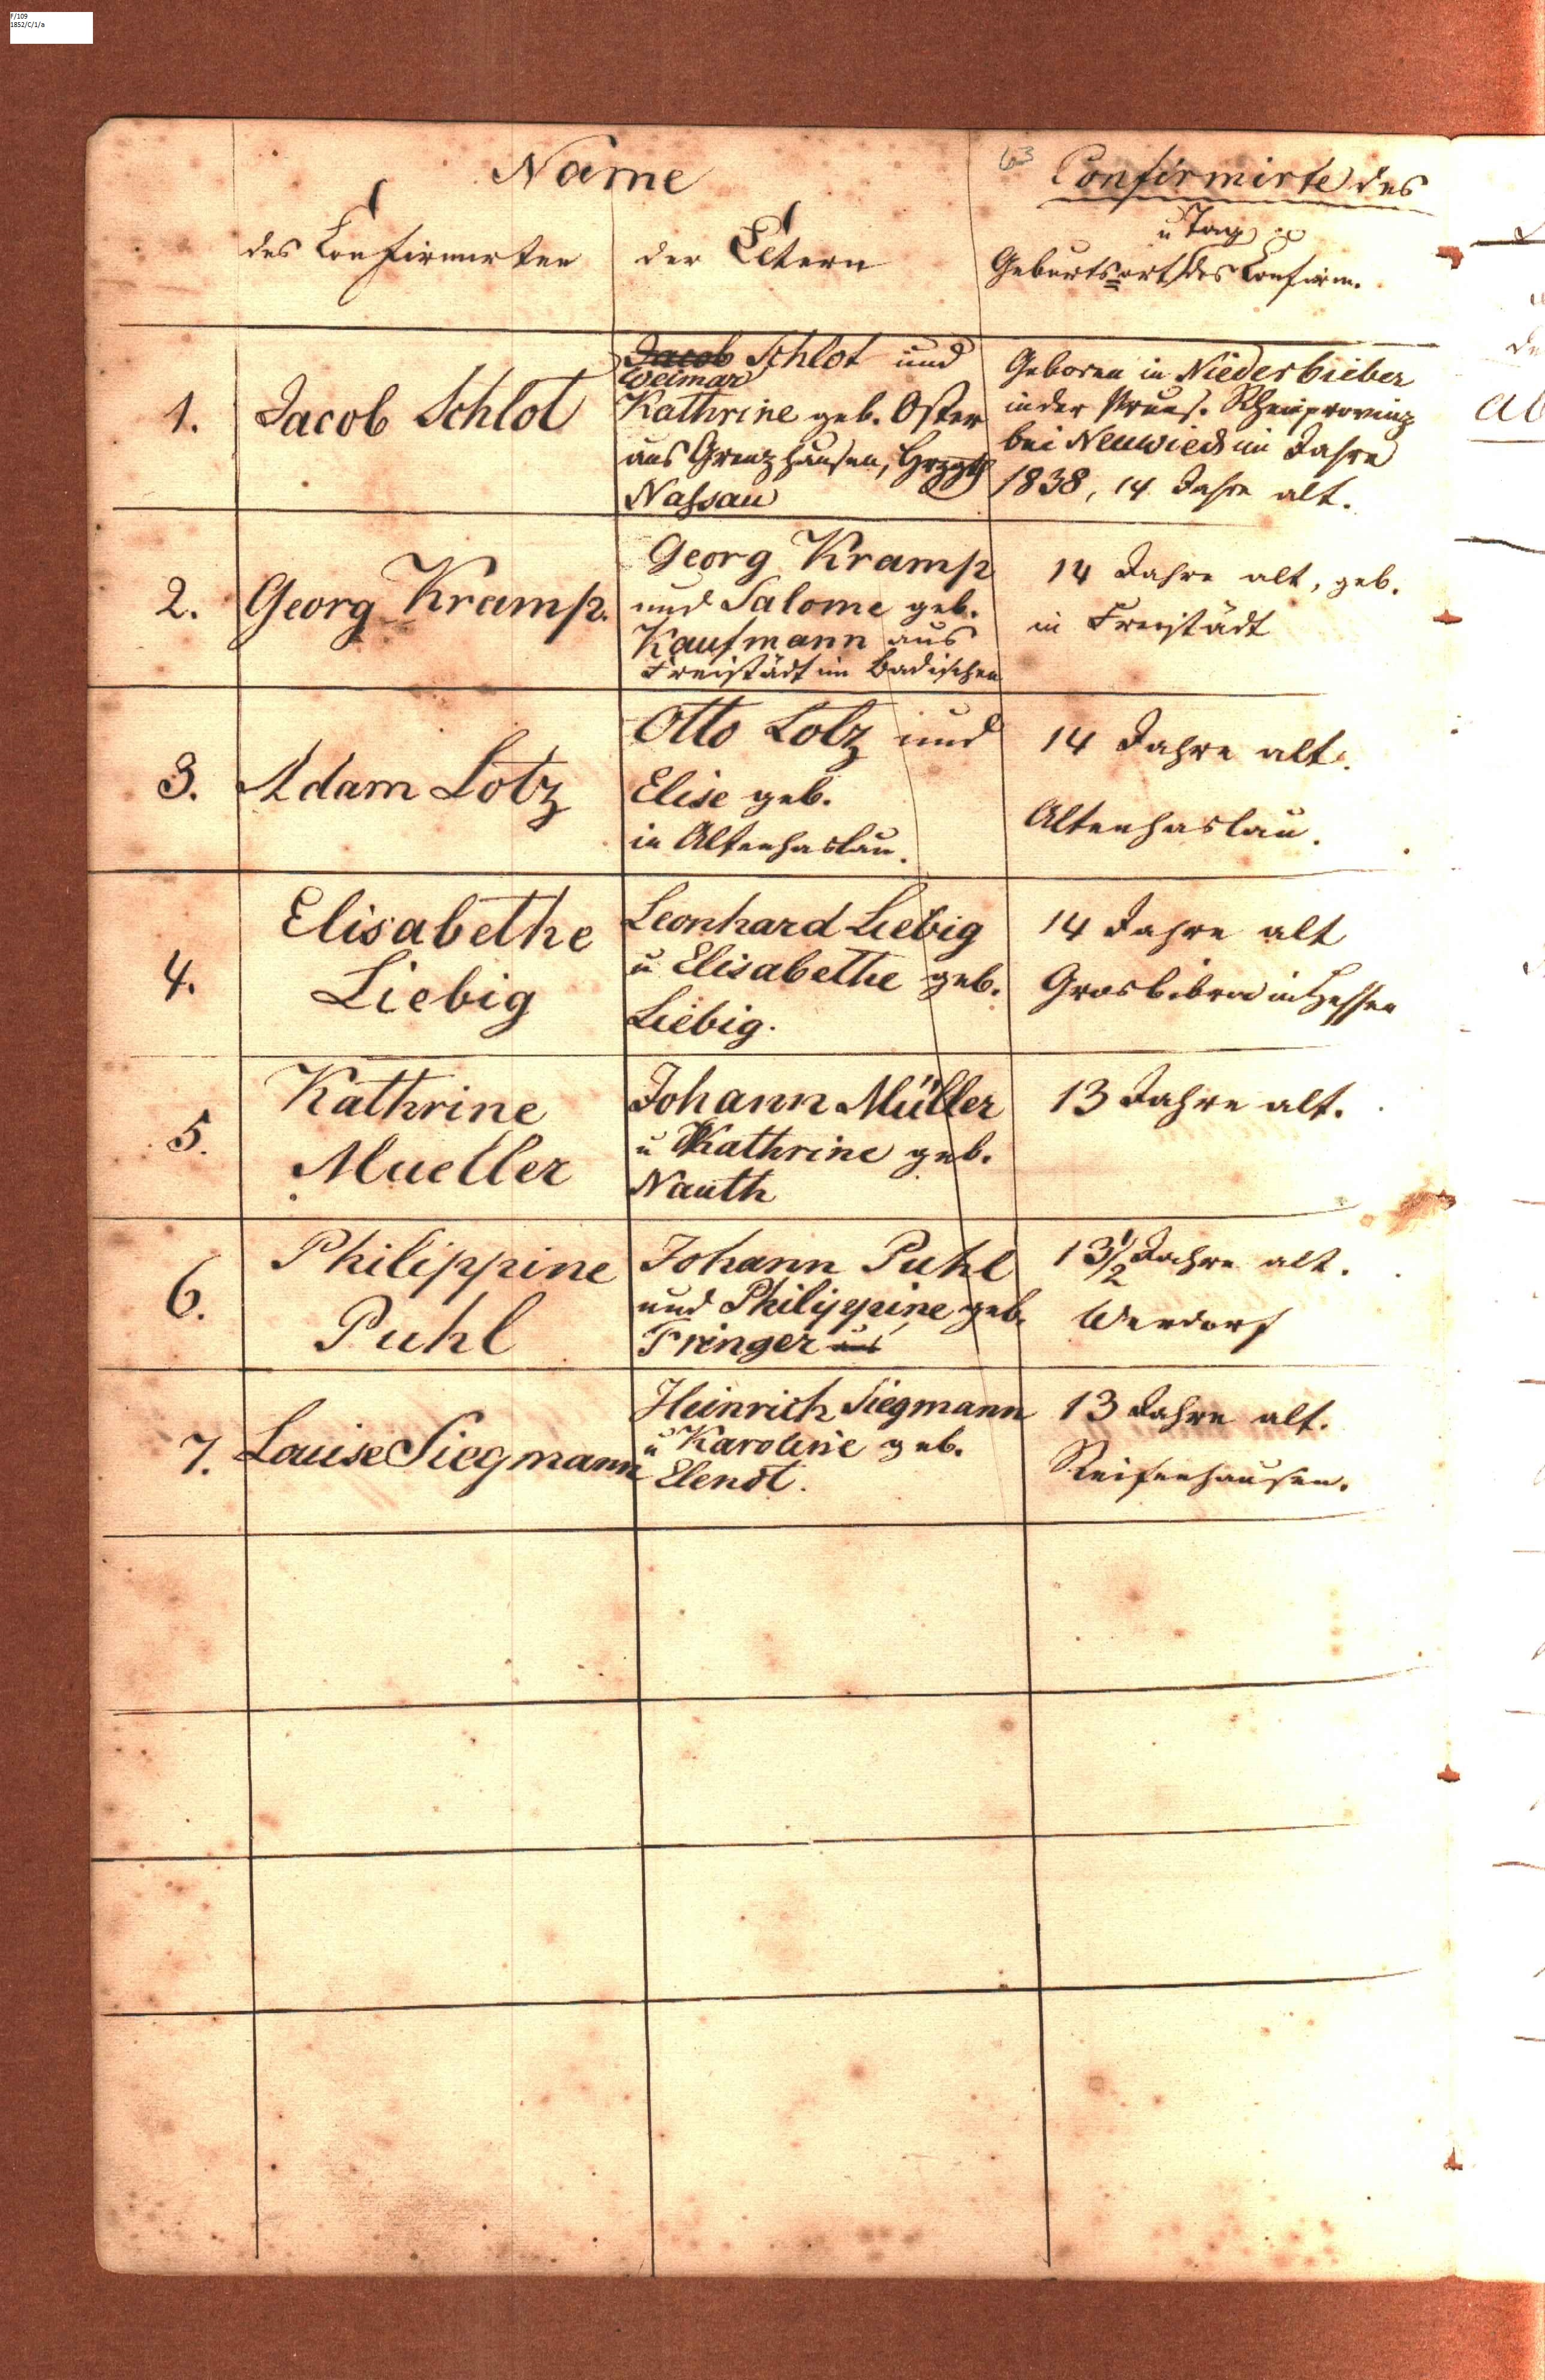 F/109
1852/C/1/a
Name
63 Confirmirte des
des Confirmirten
der Eltern
u Tag
Geburtsort des Confirm.
1.
Jacob Schlot
Jacob Schlot und
Weimar
Kathrine geb. Oster
aus Grenzhausen, Hrzgth
Nassau
Geboren in Niederbieber
in der Preus. Rheinprovinz
bei Neuwied im Jahre
1838, 14 Jahre alt.
2.
Georg Kramp.
Georg Kramp
und Salome geb.
Kaufmann aus
Freistädt im Badischen
14 Jahre alt, geb.
in Freistädt
3.
Adam Lotz
Otto Lotz und
Elise geb.
in Altenhaslau.
14 Jahre alt.
Altenhaslau.
4.
Elisabethe
Liebig
Leonhard Liebig
u Elisabethe geb.
Liebig.
14 Jahre alt
Grosbibra in Hessen
5.
Kathrine
Mueller
Johann Müller
u Kathrine geb.
Nauth
13 Jahre alt.
6.
Philippine
Puhl
Johann Puhl
und Philippine geb.
Fringer aus
13 1/2 Jahre alt.
Werdorf
7.
Louise Siegmann
Heinrich Siegmann
u Karoline geb.
Elendt.
13 Jahre alt.
Reifenhausen.